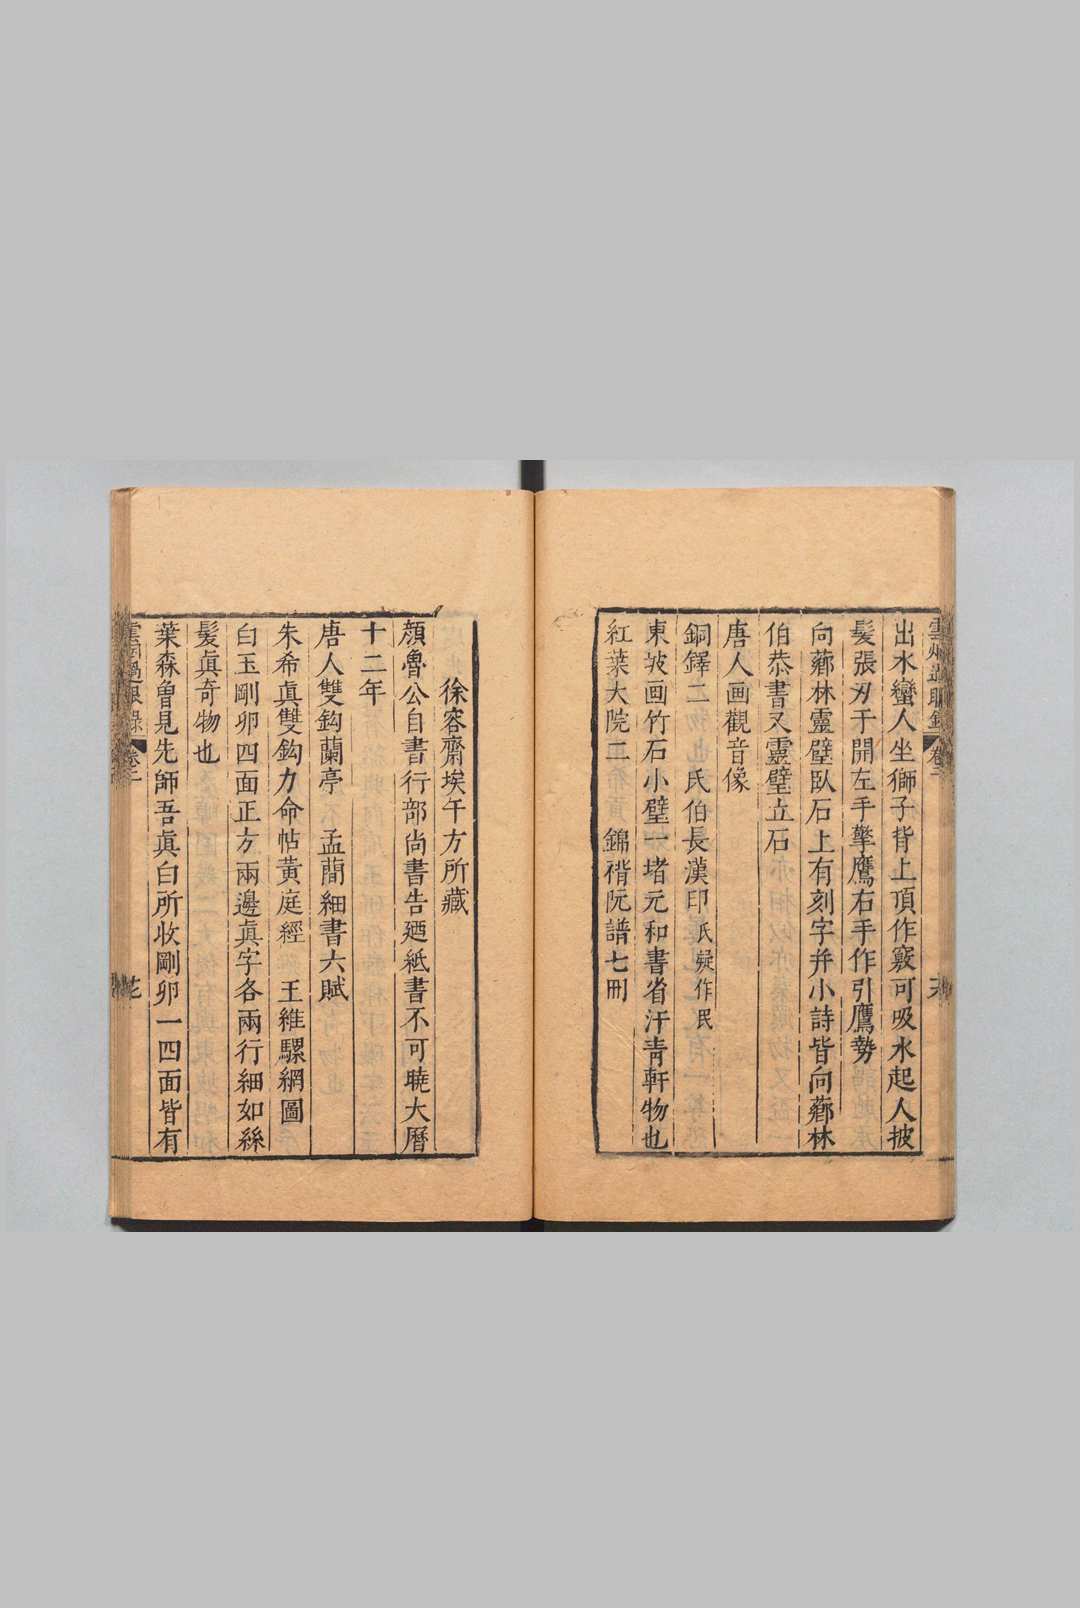 出水蠻人坐獅子背上頂作竅可吸水起人披
髮張刃于開左手擎鷹右手作引鷹勢
向薌林靈壁臥石上有刻字并小詩皆向薌林
伯恭書又靈壁立石
唐人画觀音像
銅鐸二 氏伯長漢印 氏疑作民
東坡画竹石小壁一堵元和書省汗青軒物也
紅葉大院二 錦褙阮譜七冊
徐容齋埃午方所藏
顏魯公自書行部尚書告廼紙書不可曉大曆
十二年
唐人雙鈎蘭亭 孟簡細書六賦
朱希眞雙鈎力命帖黄庭經 王維騾網圖
白玉剛卯四面正方兩邊眞字各兩行細如絲
髮眞奇物也
葉森曾見先師吾眞白所收剛卯一四面皆有
雲烟過眼錄 卷二